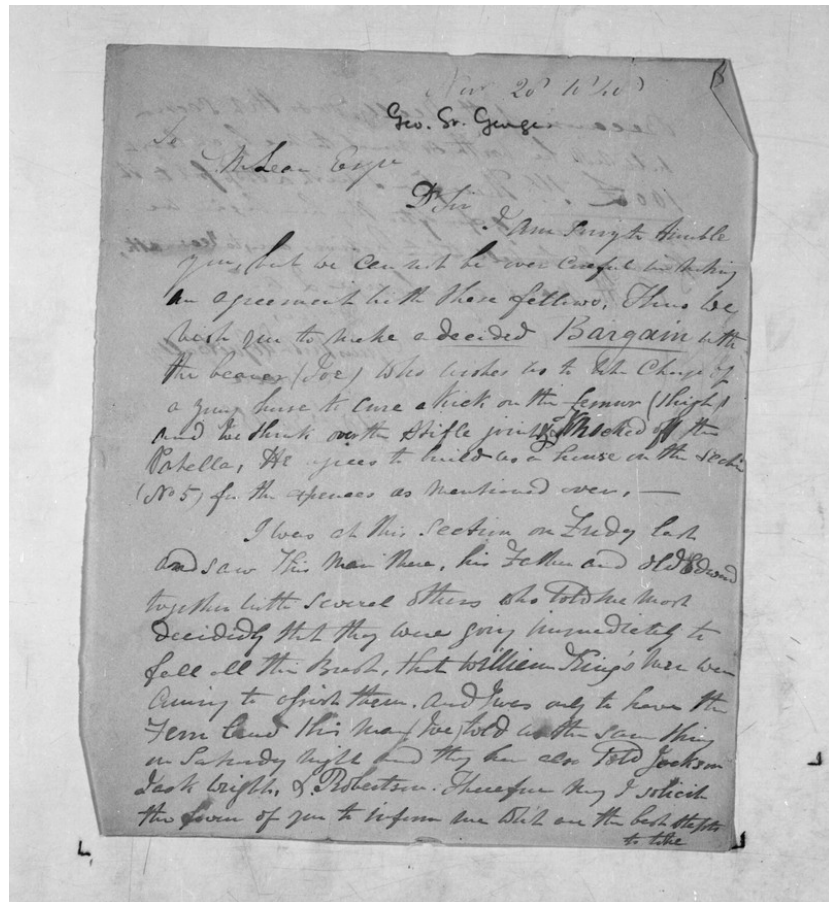 Nov. 28th
Geo. St. George
To
McLean Esqre
Dr Sir
I am sorry to trouble
you, but we can not be over careful in making
an agreement with these fellows, Thus we
wish you to make a decided Bargain with
the bearer (Joe) who wishes us to take Charge of
a young horse to cure a kick on the femur (thigh)
and we think over the stifle joint knocked off the
Patella, He agrees to build us a house on the section
(No 5) for the expences as mentioned over, —
I was at this Section on Friday last
and saw this man there, his Father and old Edward
together with several others who Told me most
decidedly that they were going immediately to
fall all the Bush, that William King's men were
coming to assist them. and I was only to have the
Fern land this man (Joe) told us the same thing
on Saturday night and they have also Told Jackson
Jack Wright, & Robertson. Therefore may I solicit
the favor of you to inform me which are the best steps
to take